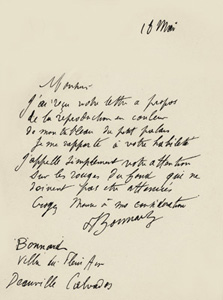 18 Mai
Monsieur
J'ai reçu votre lettre a propos
de la reproduction en couleur
de mon tableau du petit palais
Je me rapporte à votre habileté
J'appelle simplement votre attention
sur les rouges du fond qui ne
doivent pas etre attenués
Croyez Monsieur à ma consideration
PBonnard
Bonnard
Villa le Plein Air
Deauville Calvados